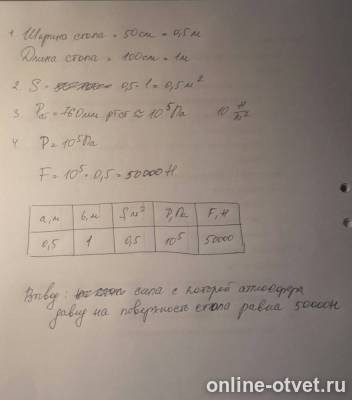 1. Ширина стола = 50см = 0,5м
Длина стола = 100см = 1м
2. S = 0,5·1 = 0,5 м²
3. = 760мм.рт.ст ≈ 10⁵Па 10 Н/м²
4. P = 10⁵Па
F = 10⁵ · 0,5 = 50000 Н.
а,м в,м S м² P,Па F,Н
0,5 1 0,5 10⁵ 50000
Вывод: сила с которой атмосфера
давит на поверхность стола равна 50000Н
online-otvet.ru